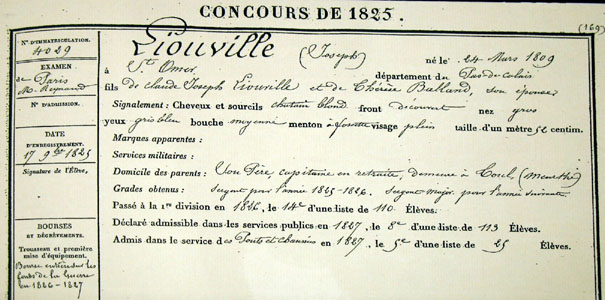 CONCOURS DE 1825.
(169)
N° D'IMMATRICULATION.
4029
EXAMEN
de Paris
Mr. Reynaud
N° D'ADMISSION.
DATE
D'ENREGISTREMENT.
17 9bre 1825
Signature de l'Élève.
BOURSES
ET DÉGRÈVEMENTS.
Trousseau et première
mise d'équipement.
Bourse entière sur les
fonds de la Guerre
en 1826 - 1827
Liouville (Joseph) né le 24 Mars 1809
à St. Omer département du Pas-de-calais
fils de Claude Joseph Liouville et de Thérèse Balland, son épouse
Signalement : Cheveux et sourcils chatain blond front découvert nez gros
yeux gris bleu bouche moyenne menton à fossette visage plein taille d'un mètre 52 centim.
Marques apparentes :
Services militaires :
Domicile des parents : Son Père, capitaine en retraite, demeure à Toul (meurthe)
Grades obtenus : Sergent pour l'année 1825-1826. Sergent Major pour l'année suivante
Passé à la 1re division en 1826, le 14e d'une liste de 110 Élèves.
Déclaré admissible dans les services publics en 1827, le 8e d'une liste de 113 Élèves.
Admis dans le service des Ponts et chaussées en 1827, le 5e d'une liste de 25 Élèves.